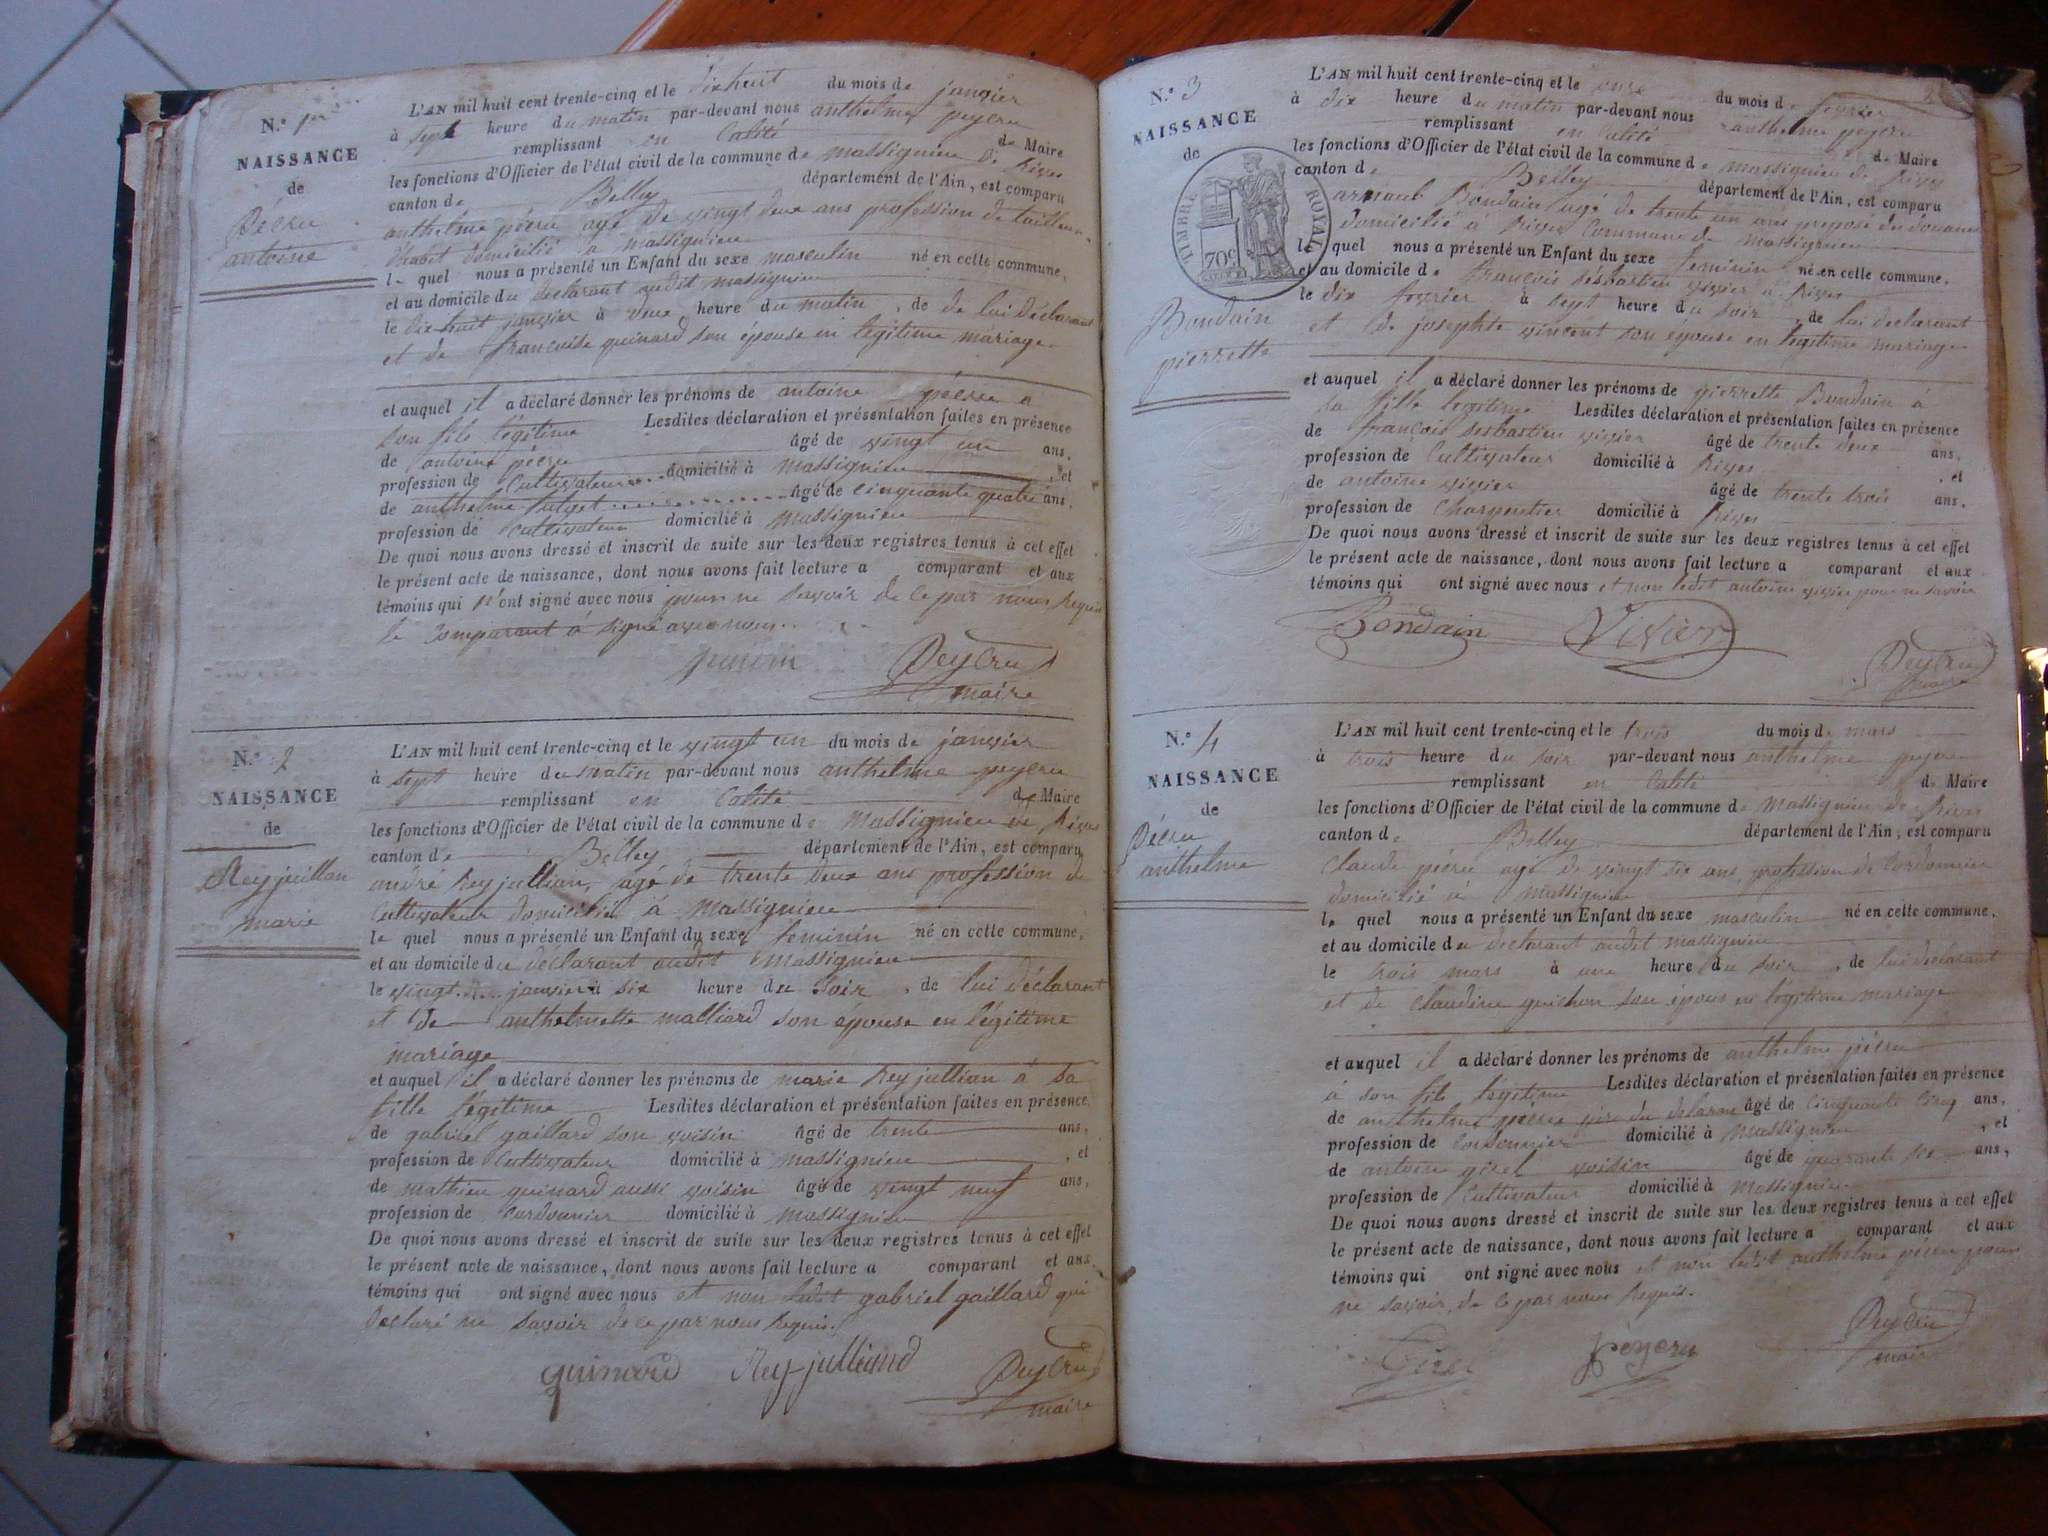 N.o 1er
NAISSANCE
de
Pécru
antoine
L'AN mil huit cent trente-cinq et le dix huit du mois de janvier
à sept heure du matin par-devant nous anthelme peycru
remplissant en Calité de Maire
les fonctions d'Officier de l'état civil de la commune de massignieu de Rives
canton de Belley département de l'Ain, est comparu
anthelme pécru agé de vingt deux ans profession de tailleur
d'habit domicilié a massignieu
le quel nous a présenté un Enfant du sexe masculin né en cette commune,
et au domicile du déclarant audit massignieu
le dix huit janvier à deux heure du matin, de de lui déclarant
et de francoise guinard son épouse en légitime mariage
et auquel il a déclaré donner les prénoms de antoine pécru a
son fils légitime Lesdites déclaration et présentation faites en présence
de antoine pécru âgé de vingt un ans,
profession de Cultivateur domicilié à massignieu, et
de anthelme âgé de cinquante quatre ans,
profession de cultivateur domicilié à massignieu
De quoi nous avons dressé et inscrit de suite sur les deux registres tenus à cet effet
le présent acte de naissance, dont nous avons fait lecture a comparant et aux
témoins qui n'ont signé avec nous pour ne savoir de ce par nous Requis
le comparant a signé avec nous
Peycru
maire
N.o 2
NAISSANCE
de
Reyjuillan
marie
L'AN mil huit cent trente-cinq et le vingt un du mois de janvier
à sept heure du matin par-devant nous anthelme peycru
remplissant en Calité de Maire
les fonctions d'Officier de l'état civil de la commune de Massignieu de Rives
canton de Belley département de l'Ain, est comparu
andré Reyjullian, agé de trente deux ans profession de
Cultivateur domicilié à Massignieu
le quel nous a présenté un Enfant du sexe feminin né en cette commune,
et au domicile du déclarant audit Massignieu
le vingt janvier à six heure du Soir, de lui déclarant
et de anthelmette malliard son epouse en légitime
mariage
et auquel il a déclaré donner les prénoms de marie Reyjullian à sa
fille légitime Lesdites déclaration et présentation faites en présence
de gabriel gaillard son voisin âgé de trente ans,
profession de Cultivateur domicilié à massignieu, et
de mathieu guinard aussi voisin âgé de vingt neuf ans,
profession de Cordonnier domicilié à massignieu
De quoi nous avons dressé et inscrit de suite sur les deux registres tenus à cet effet
le présent acte de naissance, dont nous avons fait lecture a comparant et aux
témoins qui ont signé avec nous et non ledit gabriel gaillard qui
declaré ne savoir de ce par nous Requis.
guinard Rey-julliand Peycru
maire
N.o 3
NAISSANCE
de
TIMBRE ROYAL
70c
Bondain
pierrette
L'AN mil huit cent trente-cinq et le onze du mois de fevrier
à dix heure du matin par-devant nous anthelme peycru
remplissant en Calité de Maire
les fonctions d'Officier de l'état civil de la commune de massignieu de Rives
canton de Belley département de l'Ain, est comparu
arnaub Bondain agé de trente un ans préposé des douanes
domicilié à Rives Commune de massignieu
le quel nous a présenté un Enfant du sexe feminin né en cette commune,
et au domicile de françois sésbastien vivier à Rives
le dix fevrier à sept heure du soir, de lui déclarant
et de josephte vincent son épouse en légitime mariage
et auquel il a déclaré donner les prénoms de pierrette Bondain à
sa fille legitime Lesdites déclaration et présentation faites en présence
de françois sesbastien vivier âgé de trente deux ans,
profession de Cultivateur domicilié à Rives, et
de antoine vivier âgé de trente trois ans,
profession de Charpentier domicilié à Rives
De quoi nous avons dressé et inscrit de suite sur les deux registres tenus à cet effet
le présent acte de naissance, dont nous avons fait lecture a comparant et aux
témoins qui ont signé avec nous et non ledit antoine vivier pour ne savoir
Bondain Vivier
Peycru
maire
N.o 4
NAISSANCE
de
Pécru
anthelme
L'AN mil huit cent trente-cinq et le trois du mois de mars
à trois heure du soir par-devant nous anthelme peycru
remplissant en Calité de Maire
les fonctions d'Officier de l'état civil de la commune de Massignieu de Rives
canton de Belley département de l'Ain, est comparu
Claude pécru agé de vingt six ans, profession de Cordonnier
domicilié à massignieu
le quel nous a présenté un Enfant du sexe masculin né en cette commune,
et au domicile du déclarant audit massignieu
le trois mars à une heure du soir, de lui déclarant
et de Claudine guichon son épous en légitime mariage
et auquel il a déclaré donner les prénoms de anthelme pécru
à son fils légitime Lesdites déclaration et présentation faites en présence
de anthelme pécru père du declarant âgé de cinquante cinq ans,
profession de Cordonnier domicilié à Massignieu, et
de antoine girel voisin âgé de quarante six ans,
profession de Cultivateur domicilié à Massignieu
De quoi nous avons dressé et inscrit de suite sur les deux registres tenus à cet effet
le présent acte de naissance, dont nous avons fait lecture a comparant et aux
témoins qui ont signé avec nous et non ledit anthelme pécru pour
ne savoir, de ce par nous Requis.
Girel Peycru Peycru
maire